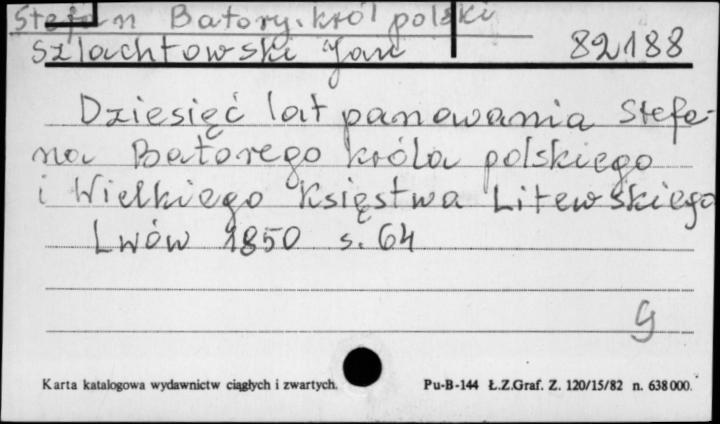 Stefan Batory. król polski
Szlachtowski Jan 82188
Dziesięć lat panowania Stefa-
na Batorego króla polskiego
i Wielkiego Księstwa Litewskiego
Lwów 1850 s. 64
g
Karta katalogowa wydawnictw ciągłych i zwartych. Pu-B-144 Ł.Z.Graf. Z. 120/15/82 n. 638000.